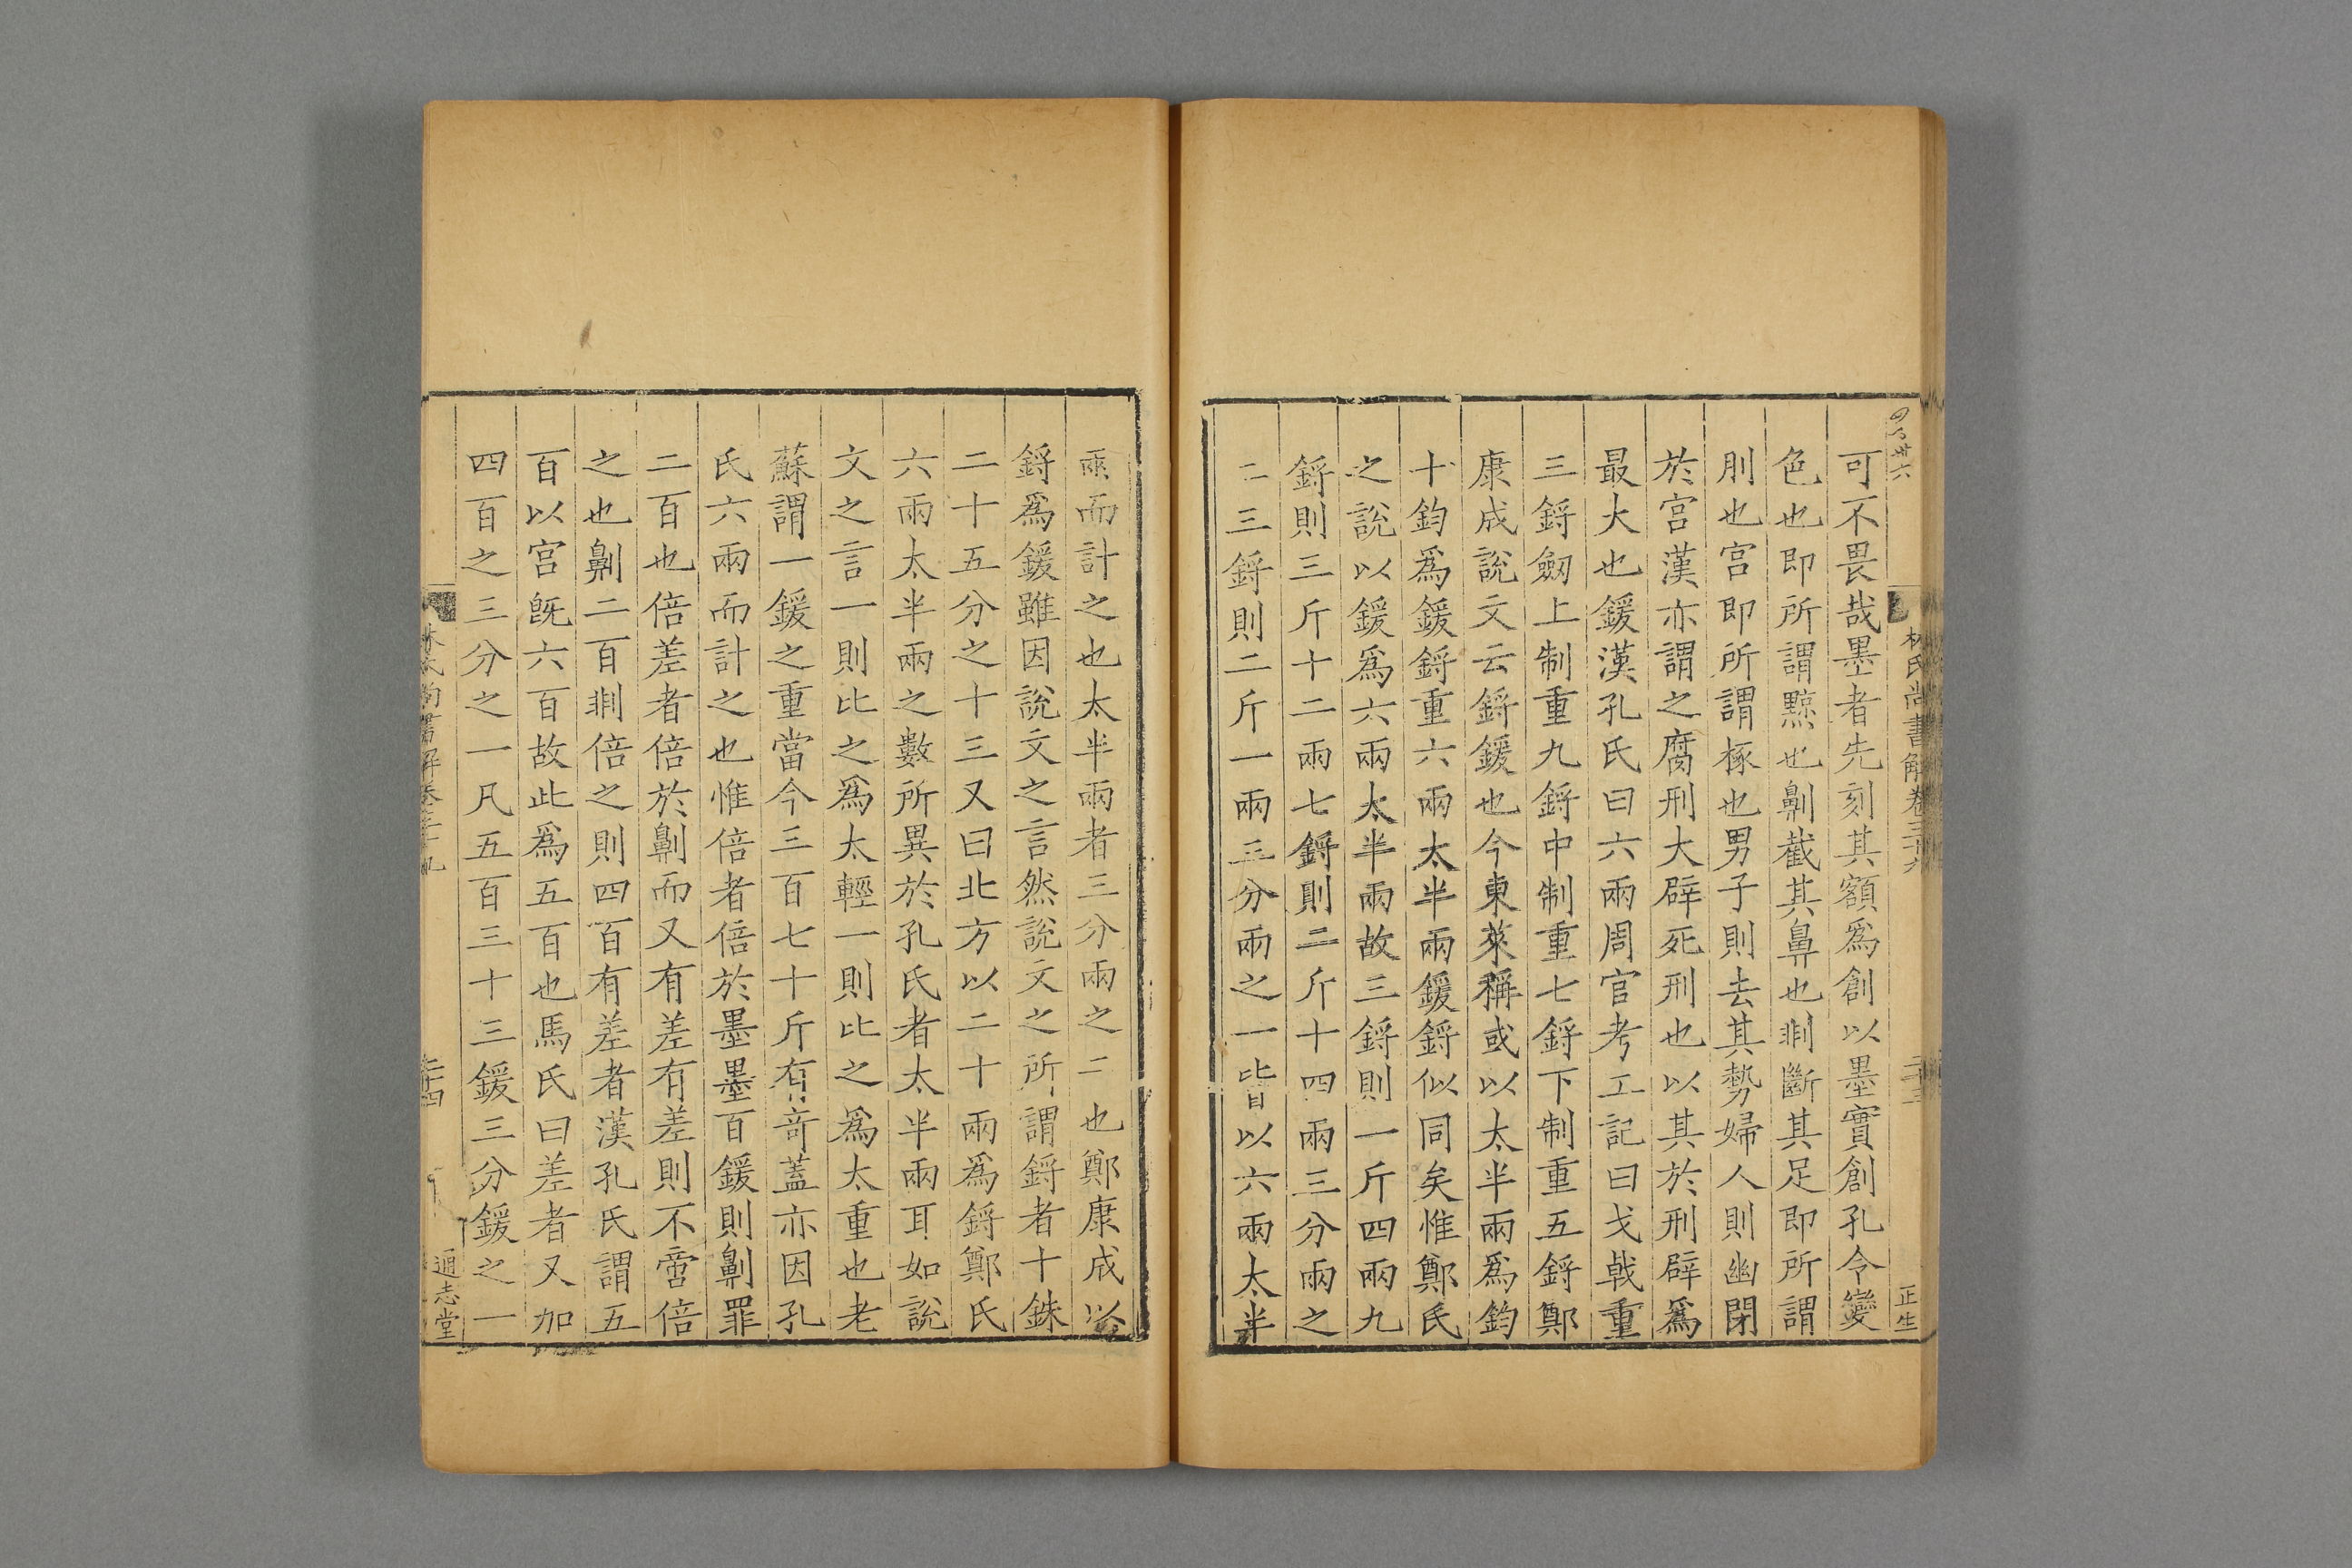 林氏尚書解卷三十九
正生
可不畏哉墨者先刻其額爲創以墨實創孔令變
色也即所謂黥也劓截其鼻也剕斷其足即所謂
刖也宫即所謂椓也男子則去其勢婦人則幽閉
於宫漢亦謂之腐刑大辟死刑也以其於刑辟爲
最大也鍰漢孔氏曰六兩周官考工記曰戈戟重
三鋝劒上制重九鋝中制重七鋝下制重五鋝鄭
康成說文云鋝鍰也今東萊稱或以太半兩爲鈞
十鈞爲鍰鋝重六兩太半兩鍰鋝似同矣惟鄭氏
之說以鍰爲六兩太半兩故三鋝則一斤四兩九
鋝則三斤十二兩七鋝則二斤十四兩三分兩之
二三鋝則二斤一兩三分兩之一皆以六兩太半
兩而計之也太半兩者三分兩之二也鄭康成以
鋝爲鍰雖因說文之言然說文之所謂鋝者十銖
二十五分之十三又曰北方以二十兩爲鋝鄭氏
六兩太半兩之數所異於孔氏者太半兩耳如說
文之言一則比之爲太輕一則比之爲太重也老
蘇謂一鍰之重當今三百七十斤有竒蓋亦因孔
氏六兩而計之也惟倍者倍於墨墨百鍰則劓罪
二百也倍差者倍於劓而又有差有差則不啻倍
之也劓二百剕倍之則四百有差者漢孔氏謂五
百以宫旣六百故此爲五百也馬氏曰差者又加
四百之三分之一凡五百三十三鍰三分鍰之一
林氏尚書解卷三十九
二十四
通志堂